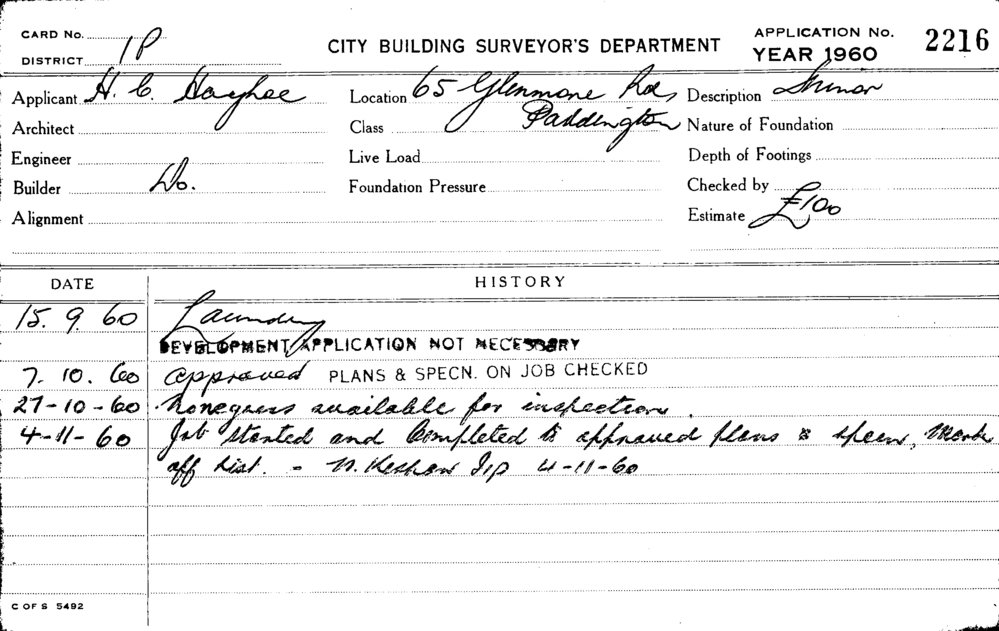 CARD No.
DISTRICT 1P
CITY BUILDING SURVEYOR'S DEPARTMENT
APPLICATION No. 2216
YEAR 1960
Applicant H. C.
Location 65 Glenmore Rd, Paddington
Description Minor
Architect
Class
Nature of Foundation
Engineer
Live Load
Depth of Footings
Builder Do.
Foundation Pressure
Checked by
Alignment
Estimate £100
DATE HISTORY
15. 9. 60 Laundry
DEVELOPMENT APPLICATION NOT NECESSARY
7. 10. 60 Approved PLANS & SPECN. ON JOB CHECKED
27-10-60 available for inspection.
4-11-60 Job Started and Completed to approved plans & specn, Mark
off list. - 4-11-60
C OF S 5492